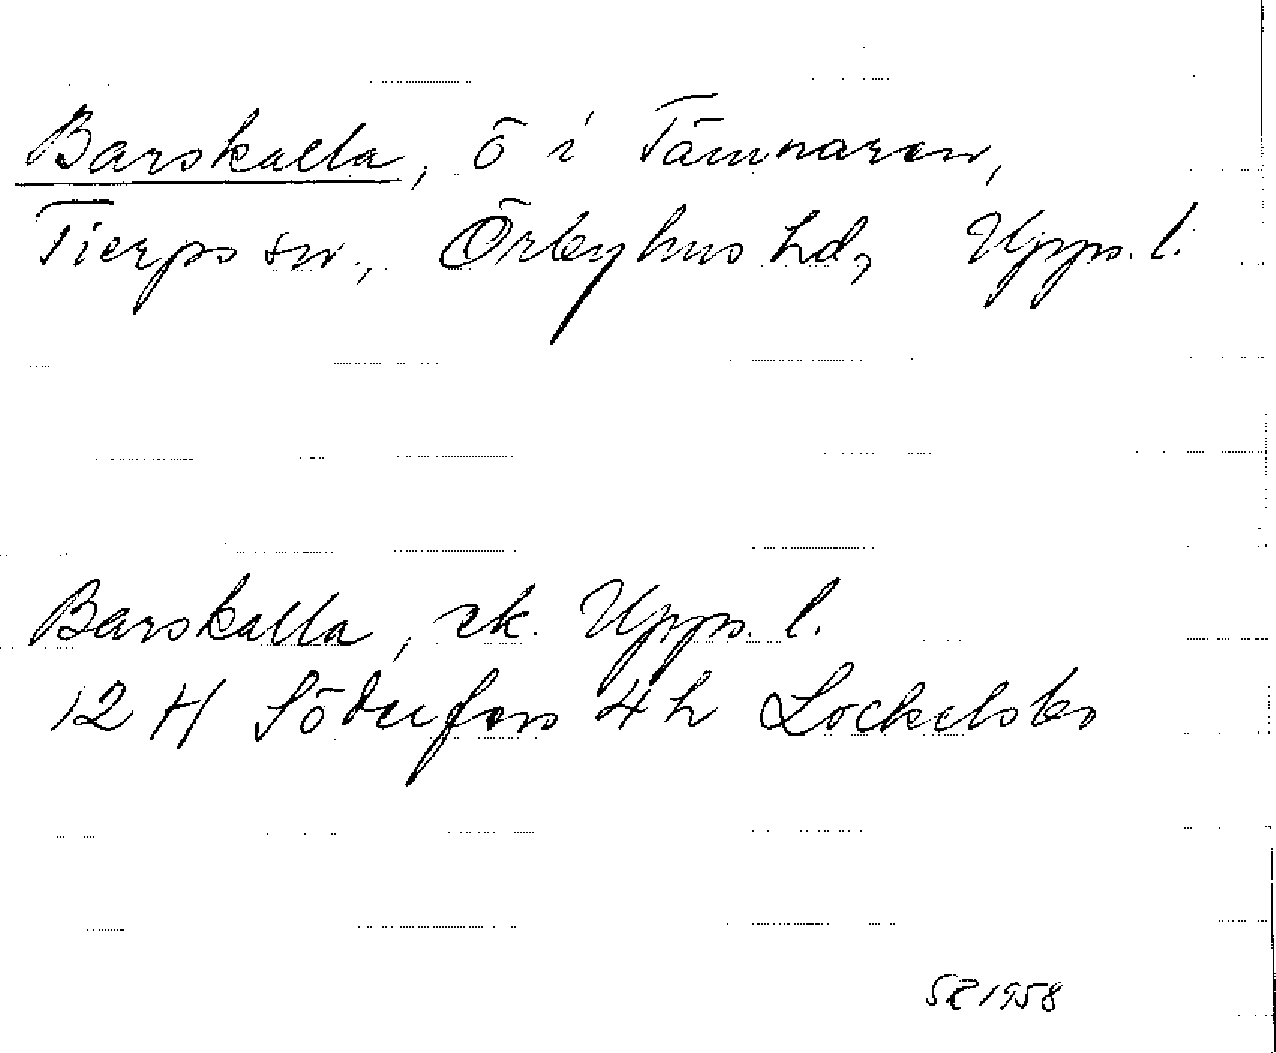 Barskalla, ö i Tämnaren,
Tierps sn., Örbyhus hd, Upps. l.
Barskalla, ek. Upps. l.
12 H Söderfors 4h Lockelsbo
SE 1958